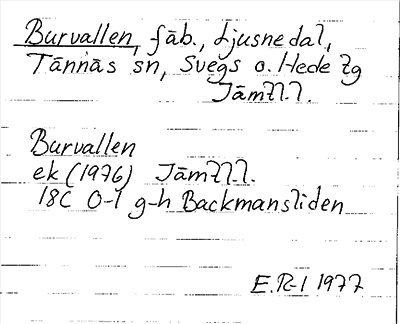 Burvallen, fäb., Ljusnedal,
Tännäs sn, Svegs o. Hede tg
Jämtl.l.
Burvallen
ek (1976) Jämtl.l.
18C 0-1 g-h Backmansliden
E.R-l 1977